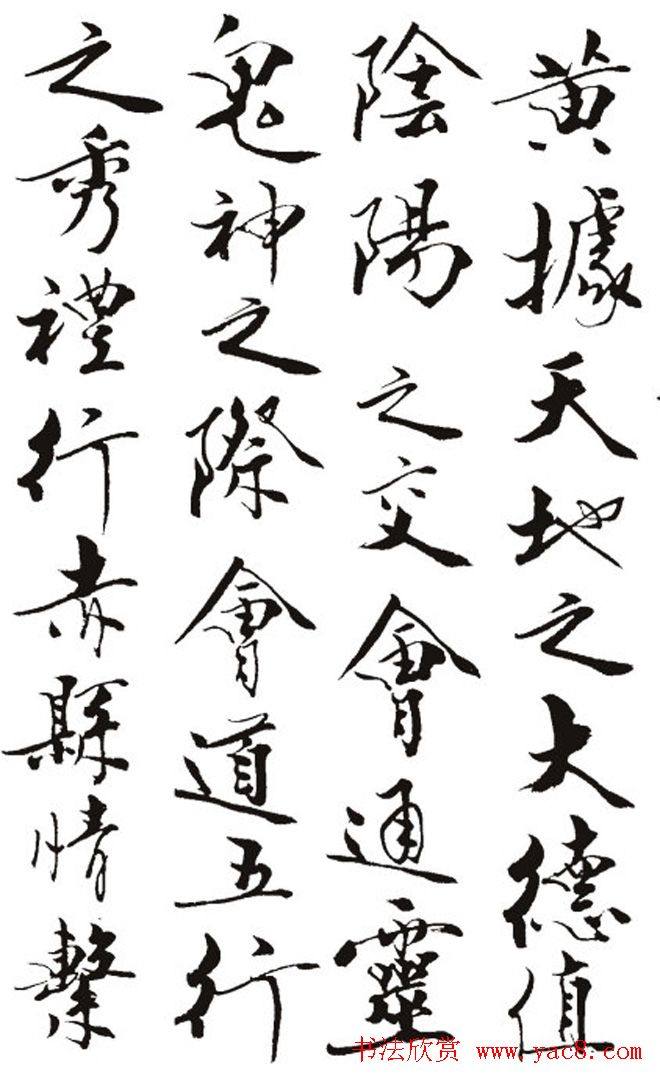 黄據天地之大德值
陰陽之交會通靈
鬼神之際會道五行
之秀禮行赤縣情繫
书法欣赏 www.yac8.com